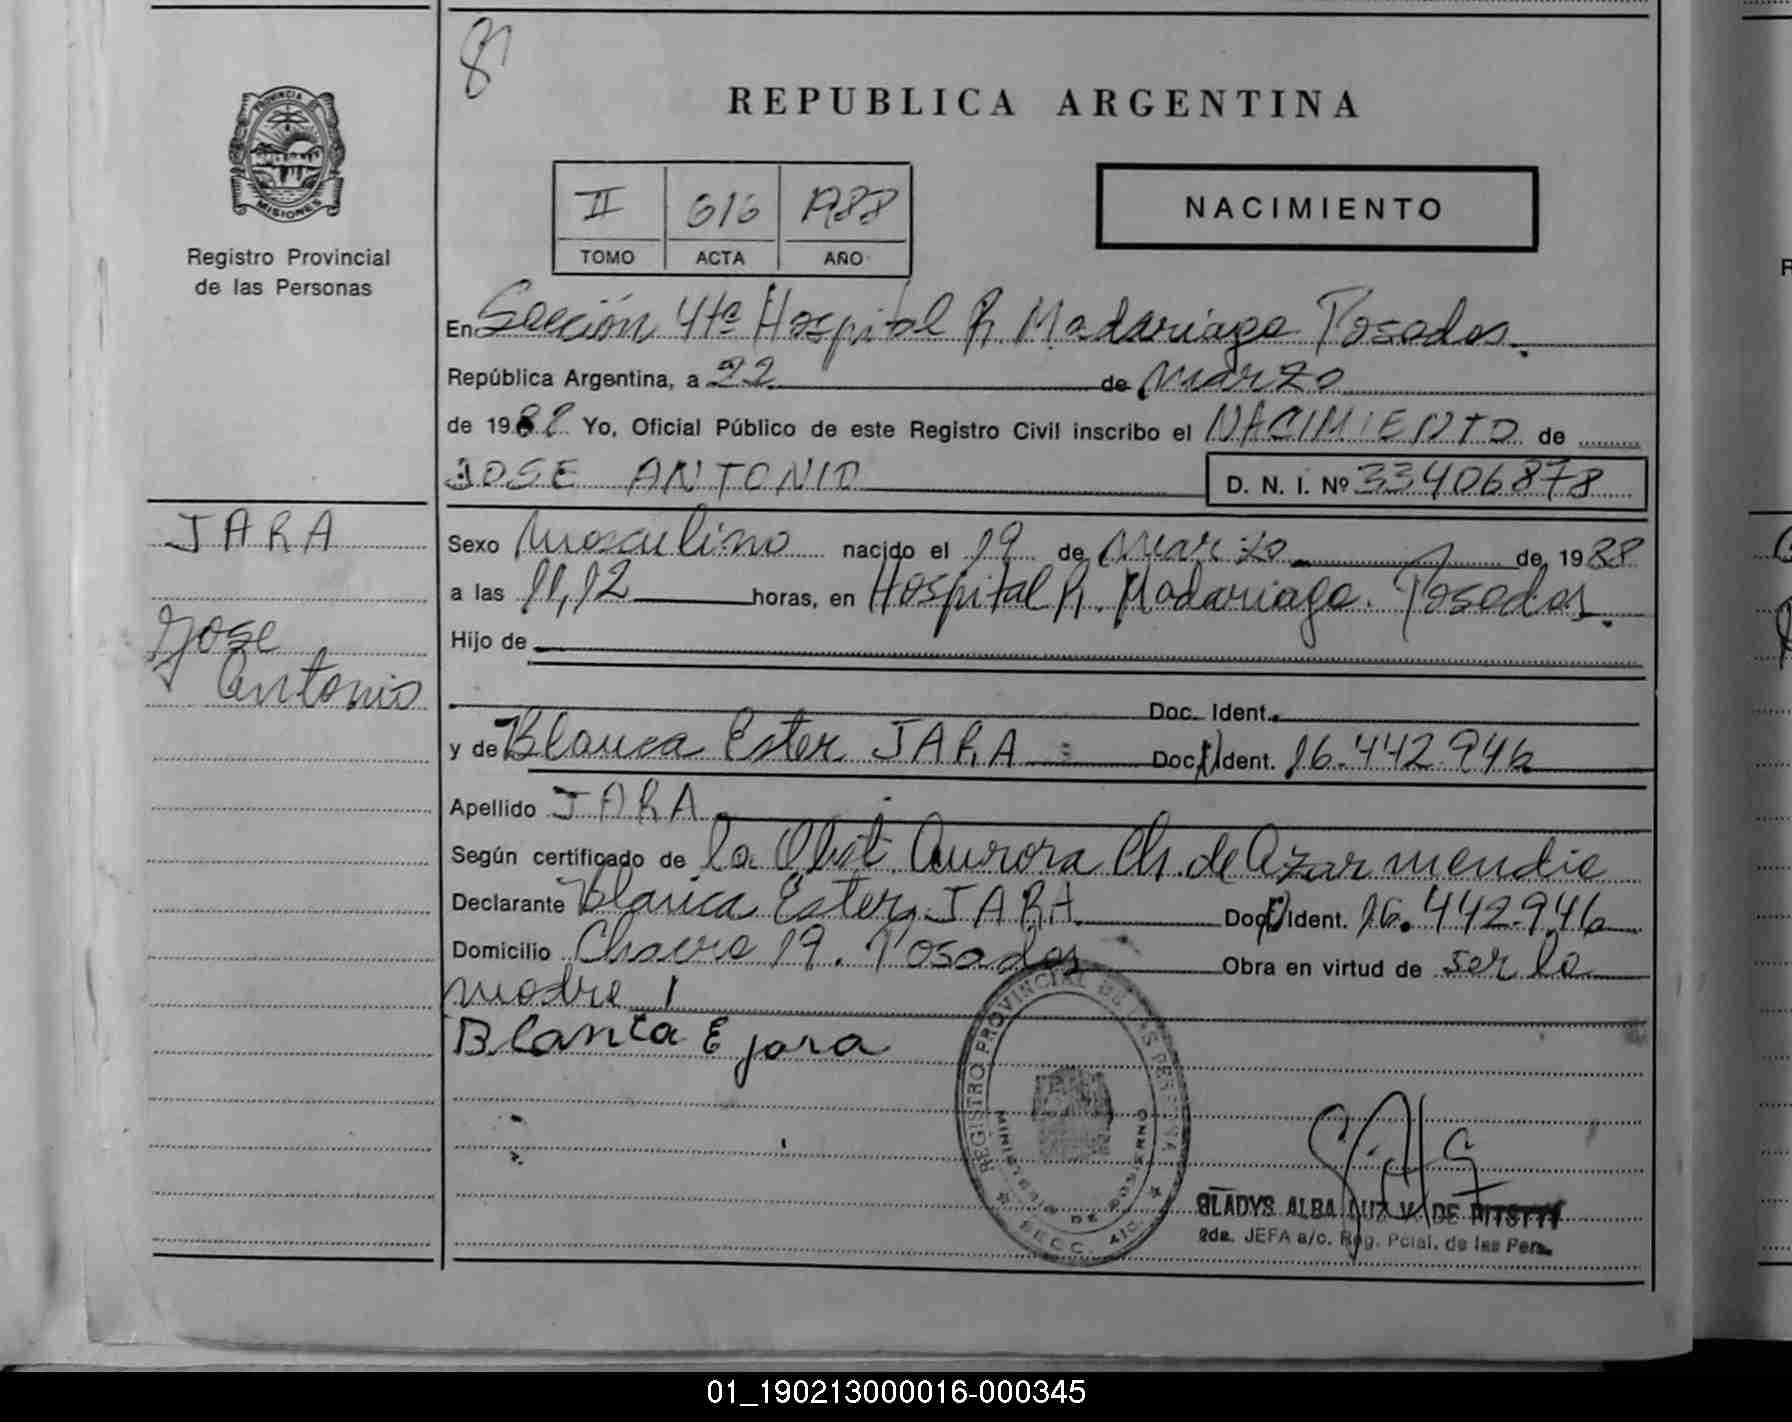 REPUBLICA ARGENTINA
PROVINCIA DE
MISIONES
Registro Provincial
de las Personas
II 616 1988
TOMO ACTA AÑO
NACIMIENTO
En Sección 4ta Hospital R. Madariaga Posadas.
República Argentina, a 22 de Marzo
de 1988 Yo, Oficial Público de este Registro Civil inscribo el NACIMIENTO de
JOSE ANTONIO D. N. I. Nº 33406878
JARA
Jose
Antonio
Sexo Masculino nacido el 19 de Marzo de 1988
a las 11,12 horas, en Hospital R. Madariaga. Posadas.
Hijo de
Doc. Ident.
y de Blanca Ester JARA Doc. Ident. 16.442.946
Apellido JARA
Según certificado de la Obst. Aurora Ch. de Azarmendia
Declarante Blanca Ester JARA Doc. Ident. 16.442.946
Domicilio 19. Posadas Obra en virtud de ser la
madre
Blanca E jara
REGISTRO PROVINCIAL DE LAS PERSONAS
MINISTERIO DE GOBIERNO
SECC. 4ta.
GLADYS ALBA LUZ V. DE
2da. JEFA a/c. Reg. Pcial. de las Pers.
01_190213000016-000345